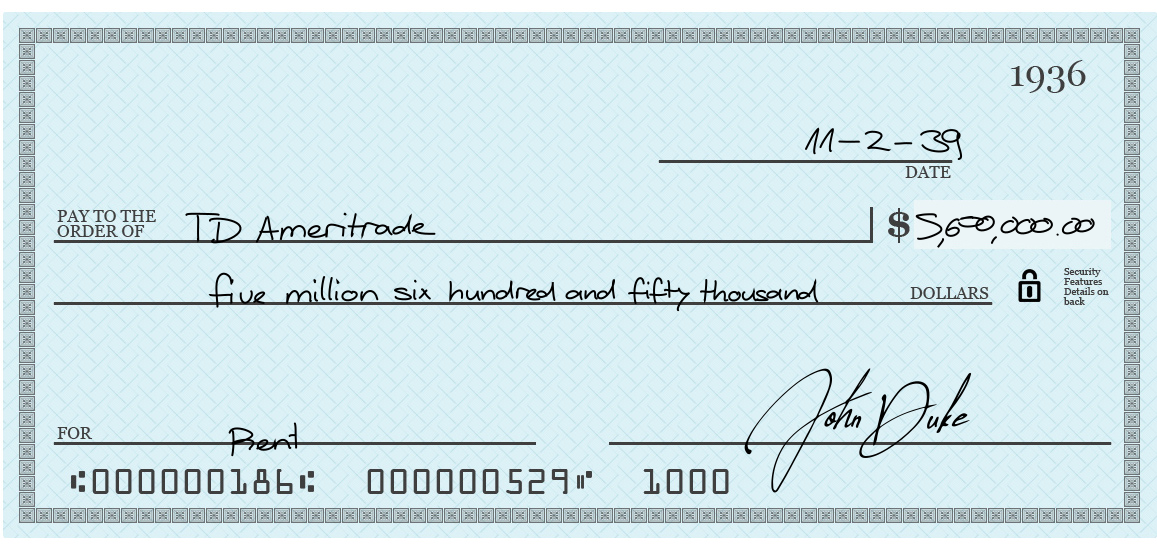 1936
11-2-39
DATE
PAY TO THE
ORDER OF TD Ameritrade $ 5,600,000.00
five million six hundred and fifty thousand DOLLARS
Security
Features
Details on
back
FOR Rent John Duke
⑆000000186⑆ 000000529⑈ 1000